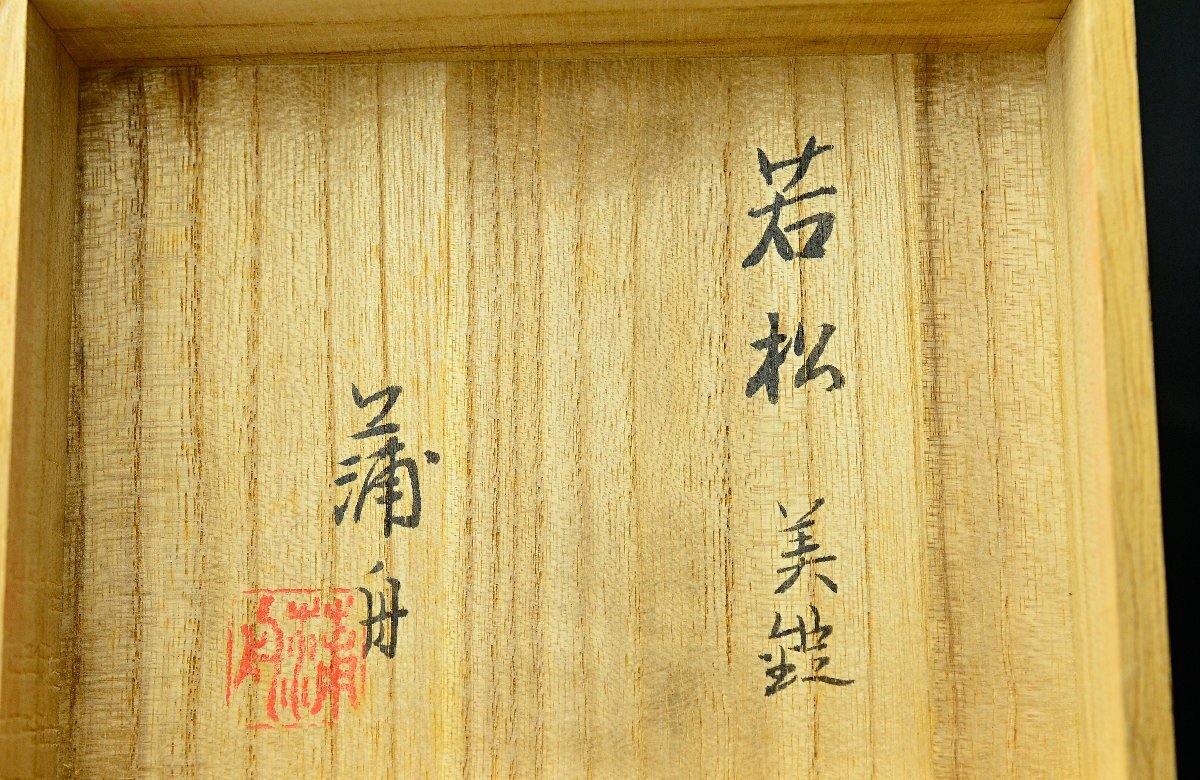 若松 美
蒲舟
蒲舟